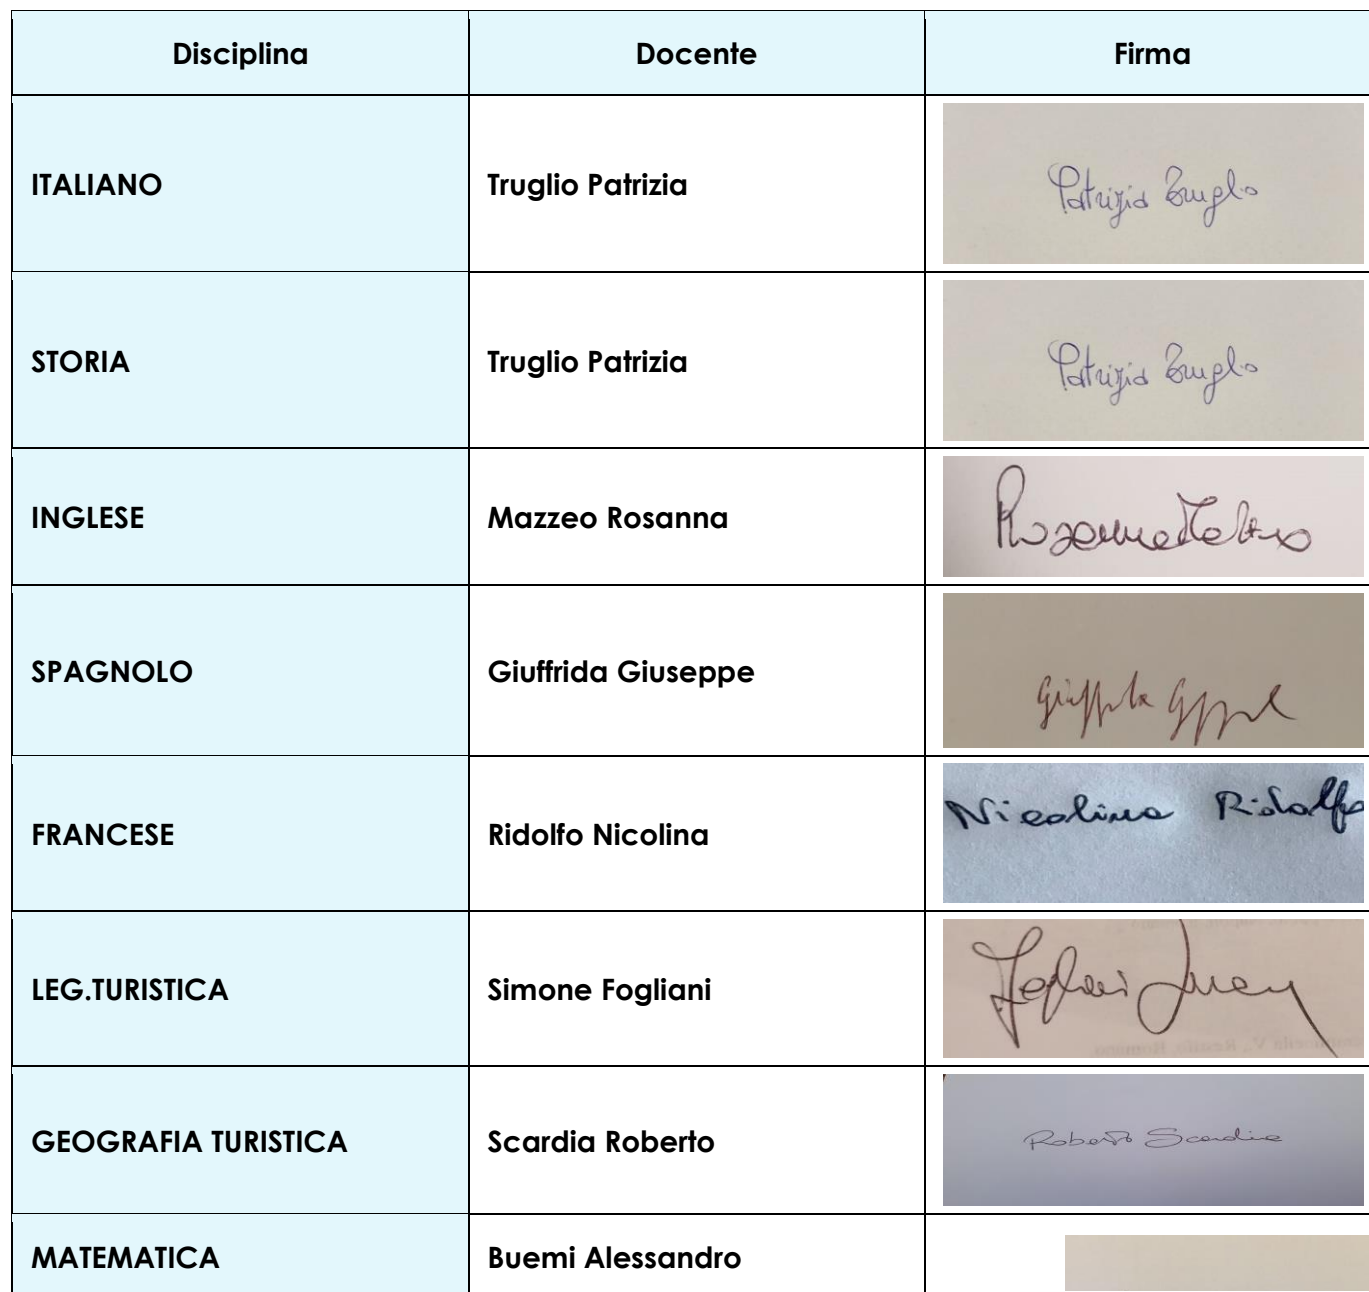 Disciplina Docente Firma
ITALIANO Truglio Patrizia Patrizia Truglio
STORIA Truglio Patrizia Patrizia Truglio
INGLESE Mazzeo Rosanna Rosanna
SPAGNOLO Giuffrida Giuseppe Giuffrida
FRANCESE Ridolfo Nicolina Nicolina Ridolfo
LEG.TURISTICA Simone Fogliani Fogliani
GEOGRAFIA TURISTICA Scardia Roberto Roberto Scardia
MATEMATICA Buemi Alessandro